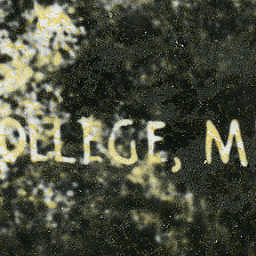 OLLEGE, M